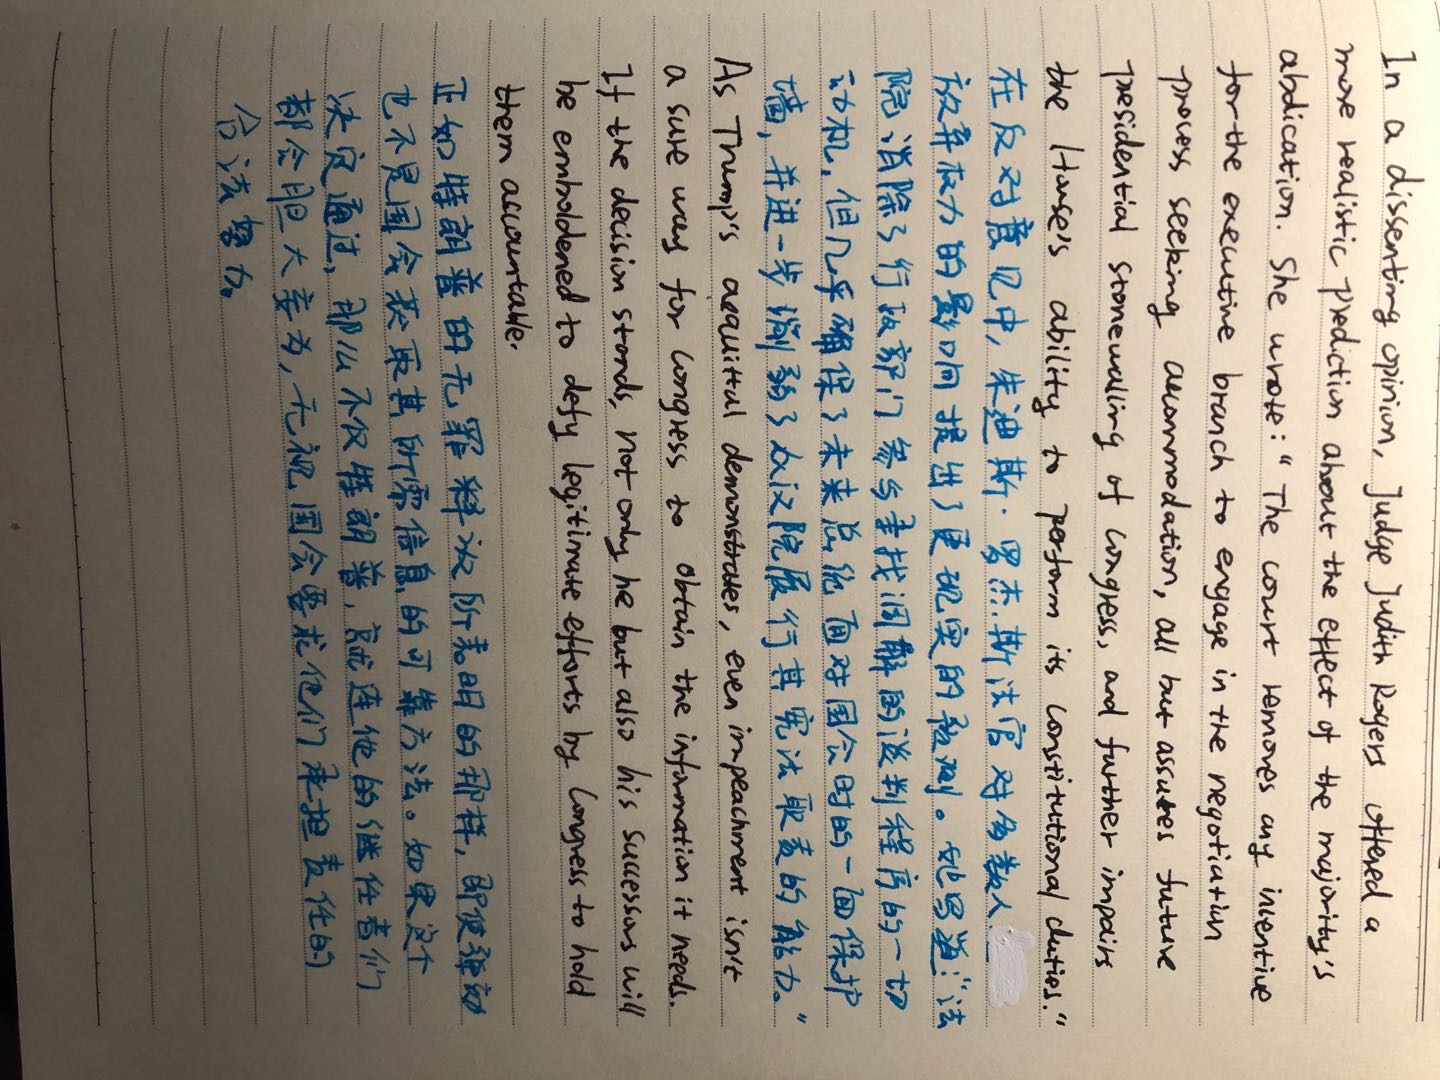 In a dissenting opinion, Judge Judith Rogers offered a
more realistic prediction about the effect of the majority's
abdication. She wrote: "The court removes any incentive
for the executive branch to engage in the negotiation
process seeking accommodation, all but assures future
presidential stonewalling of Congress, and further impairs
the House's ability to perform its constitutional duties."
在反对意见中,朱迪斯·罗杰斯法官对多数人
放弃权力的影响提出了更现实的预测。她写道:"法
院消除了行政部门参与寻找调解的谈判程序的一切
动机,但几乎确保了未来总统面对国会时的一面保护
墙,并进一步削弱了众议院履行其宪法职责的能力。"
As Trump's acquittal demonstrates, even impeachment isn't
a sure way for Congress to obtain the information it needs.
If the decision stands, not only he but also his successors will
be emboldened to defy legitimate efforts by Congress to hold
them accountable.
正如特朗普的无罪释放所表明的那样,即使弹劾
也不是国会获取其所需信息的可靠方法。如果这个
决定通过,那么不仅特朗普,就连他的继任者们
都会胆大妄为,无视国会要求他们承担责任的
合法努力。